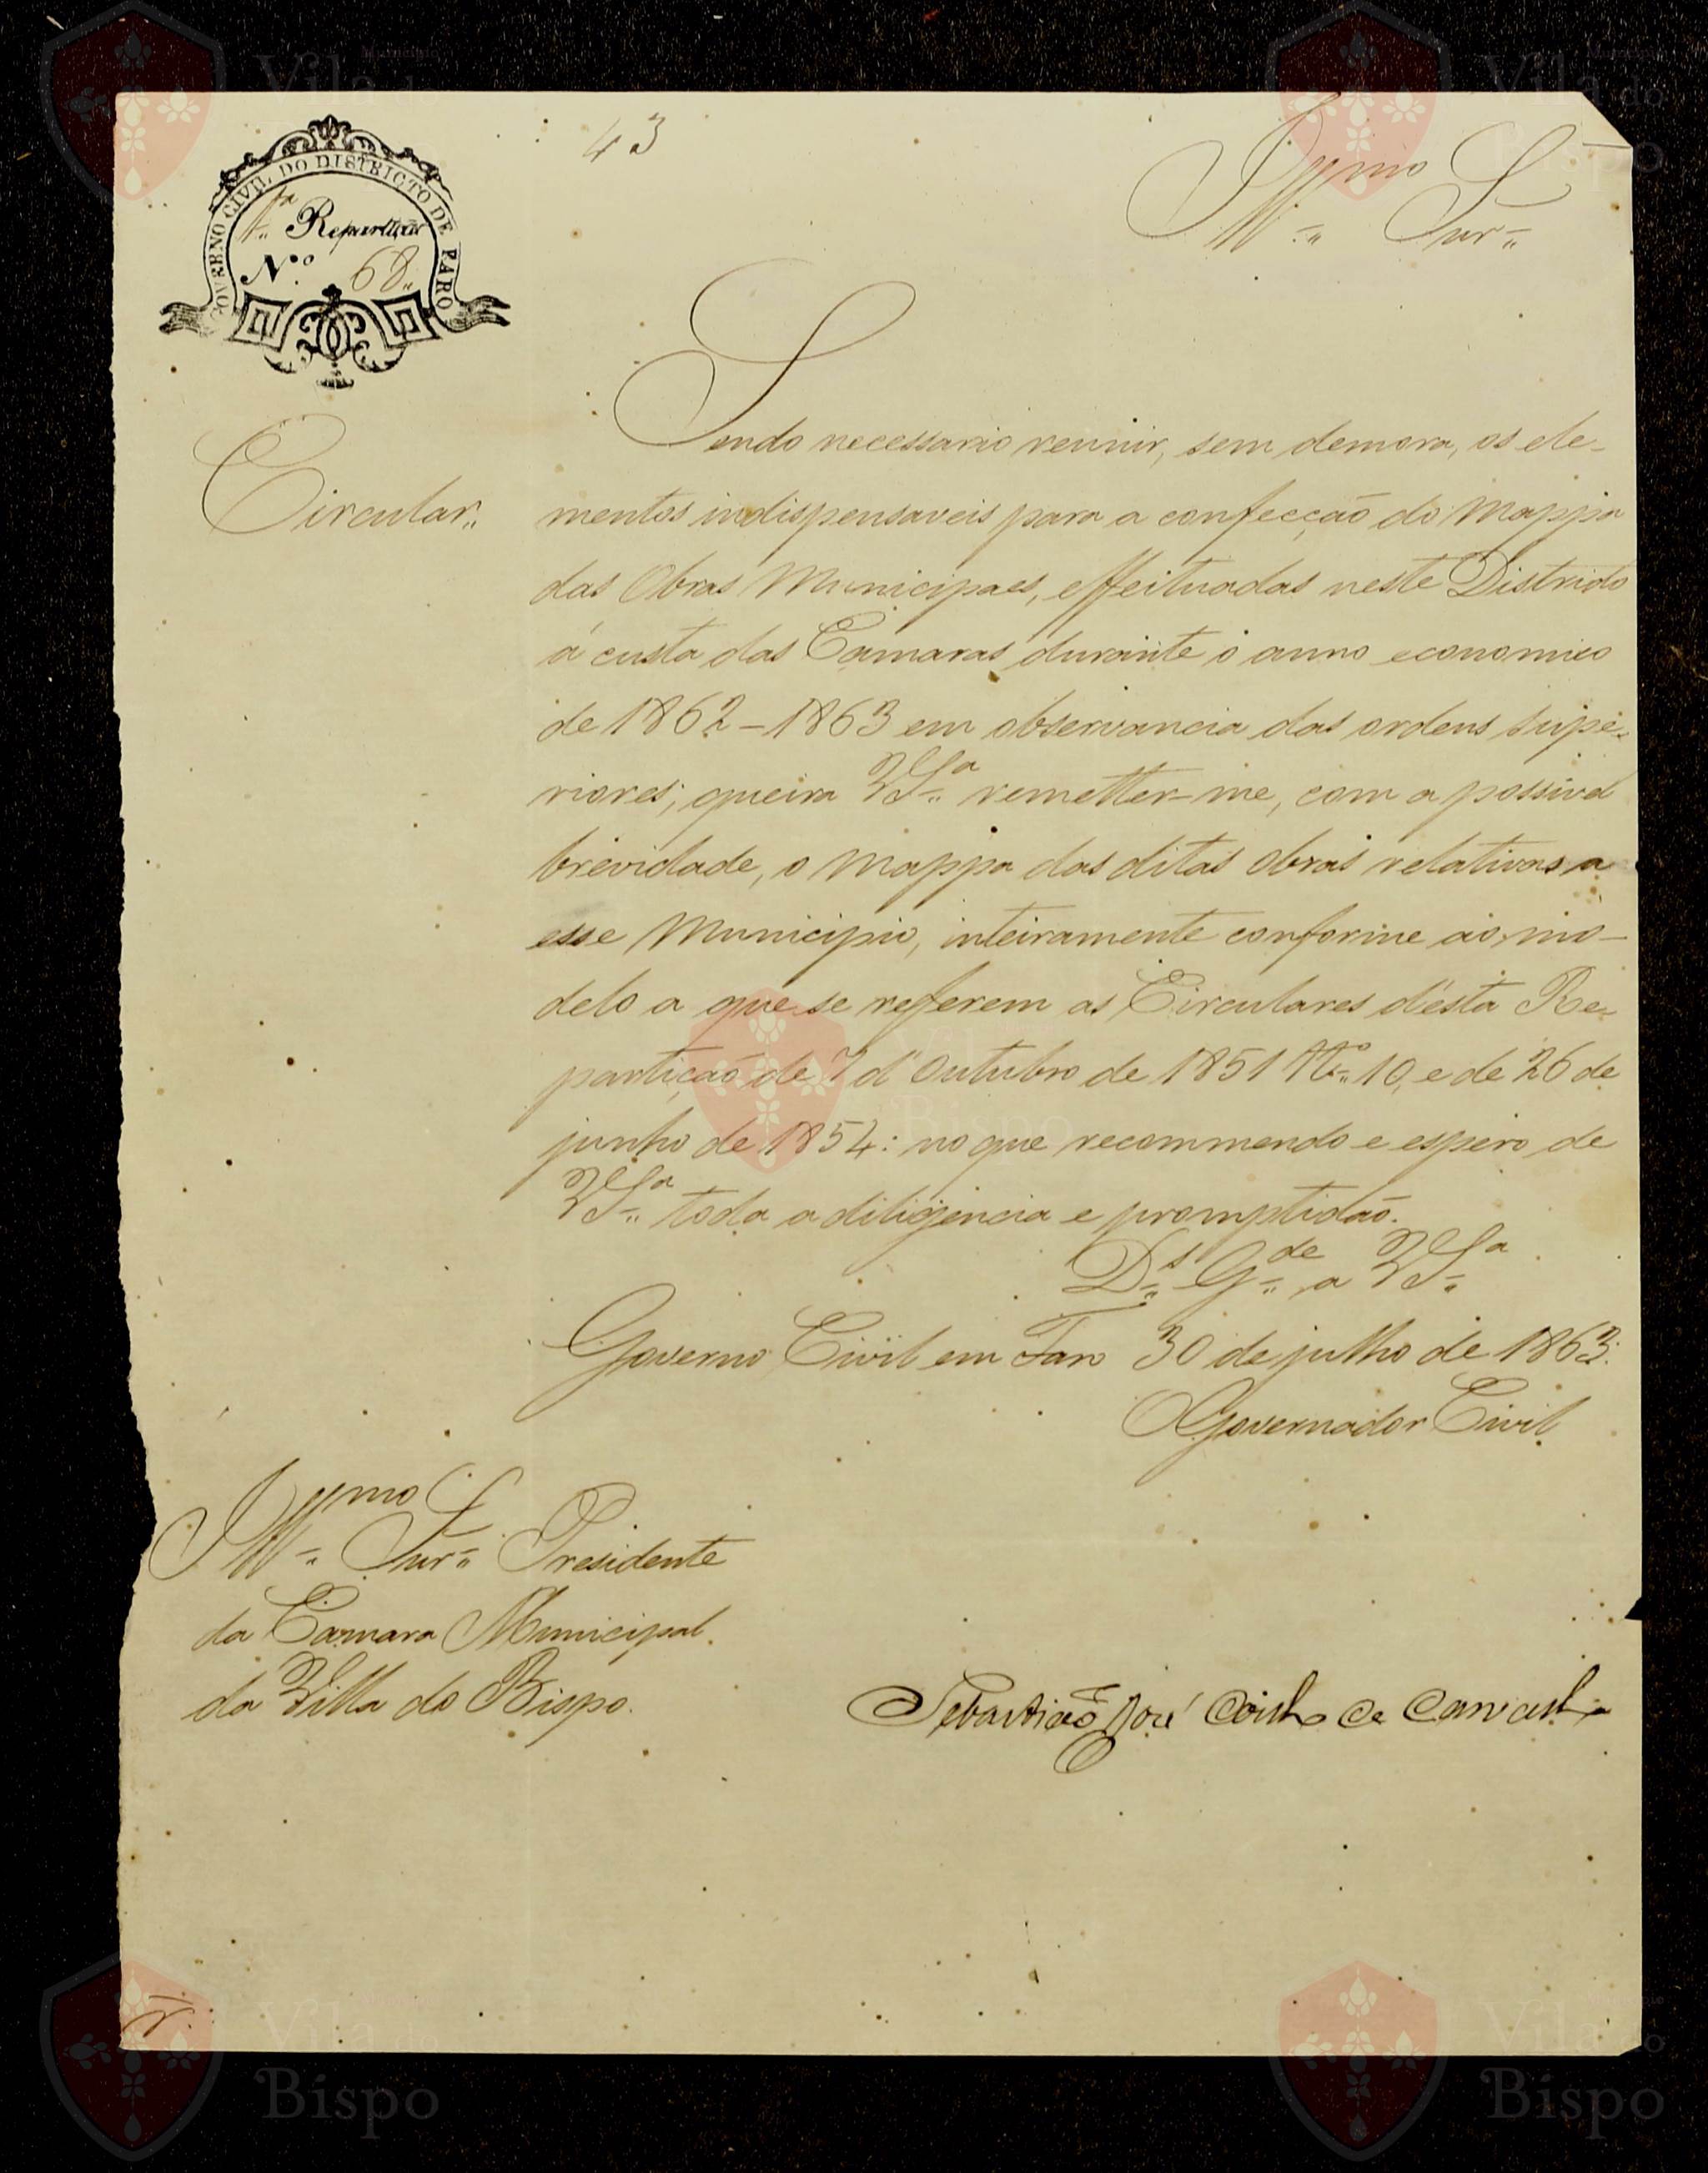 43
GOVERNO CIVIL DO DISTRICTO DE FARO
1.ª Repartição
N.º 68
Ill.mo Snr.
Circular.
Sendo necessario reunir, sem demora, os ele-
mentos indispensaveis para a confecção do Mappa
das Obras Municipaes, effeituadas neste Districto
á custa das Camaras durante o anno economico
de 1862-1863 em observancia das ordens supe-
riores; queira V.S.ª remetter-me, com a possivel
brevidade, o Mappa das ditas obras relativas a
esse Municipio, inteiramente conforme ao mo-
delo a que se referem as Circulares d'esta Re-
partição de 7 d'Outubro de 1851 N.º 10, e de 26 de
junho de 1854: no que recommendo e espero de
V.S.ª toda a diligencia e promptidão.
D.s G.de a V.S.ª
Governo Civil em Faro 30 de julho de 1863.
O Governador Civil
Ill.mo Snr. Presidente
da Camara Municipal
da Villa do Bispo.
Sebastião José Coelho de Carvalho
Município
Vila do
Bispo